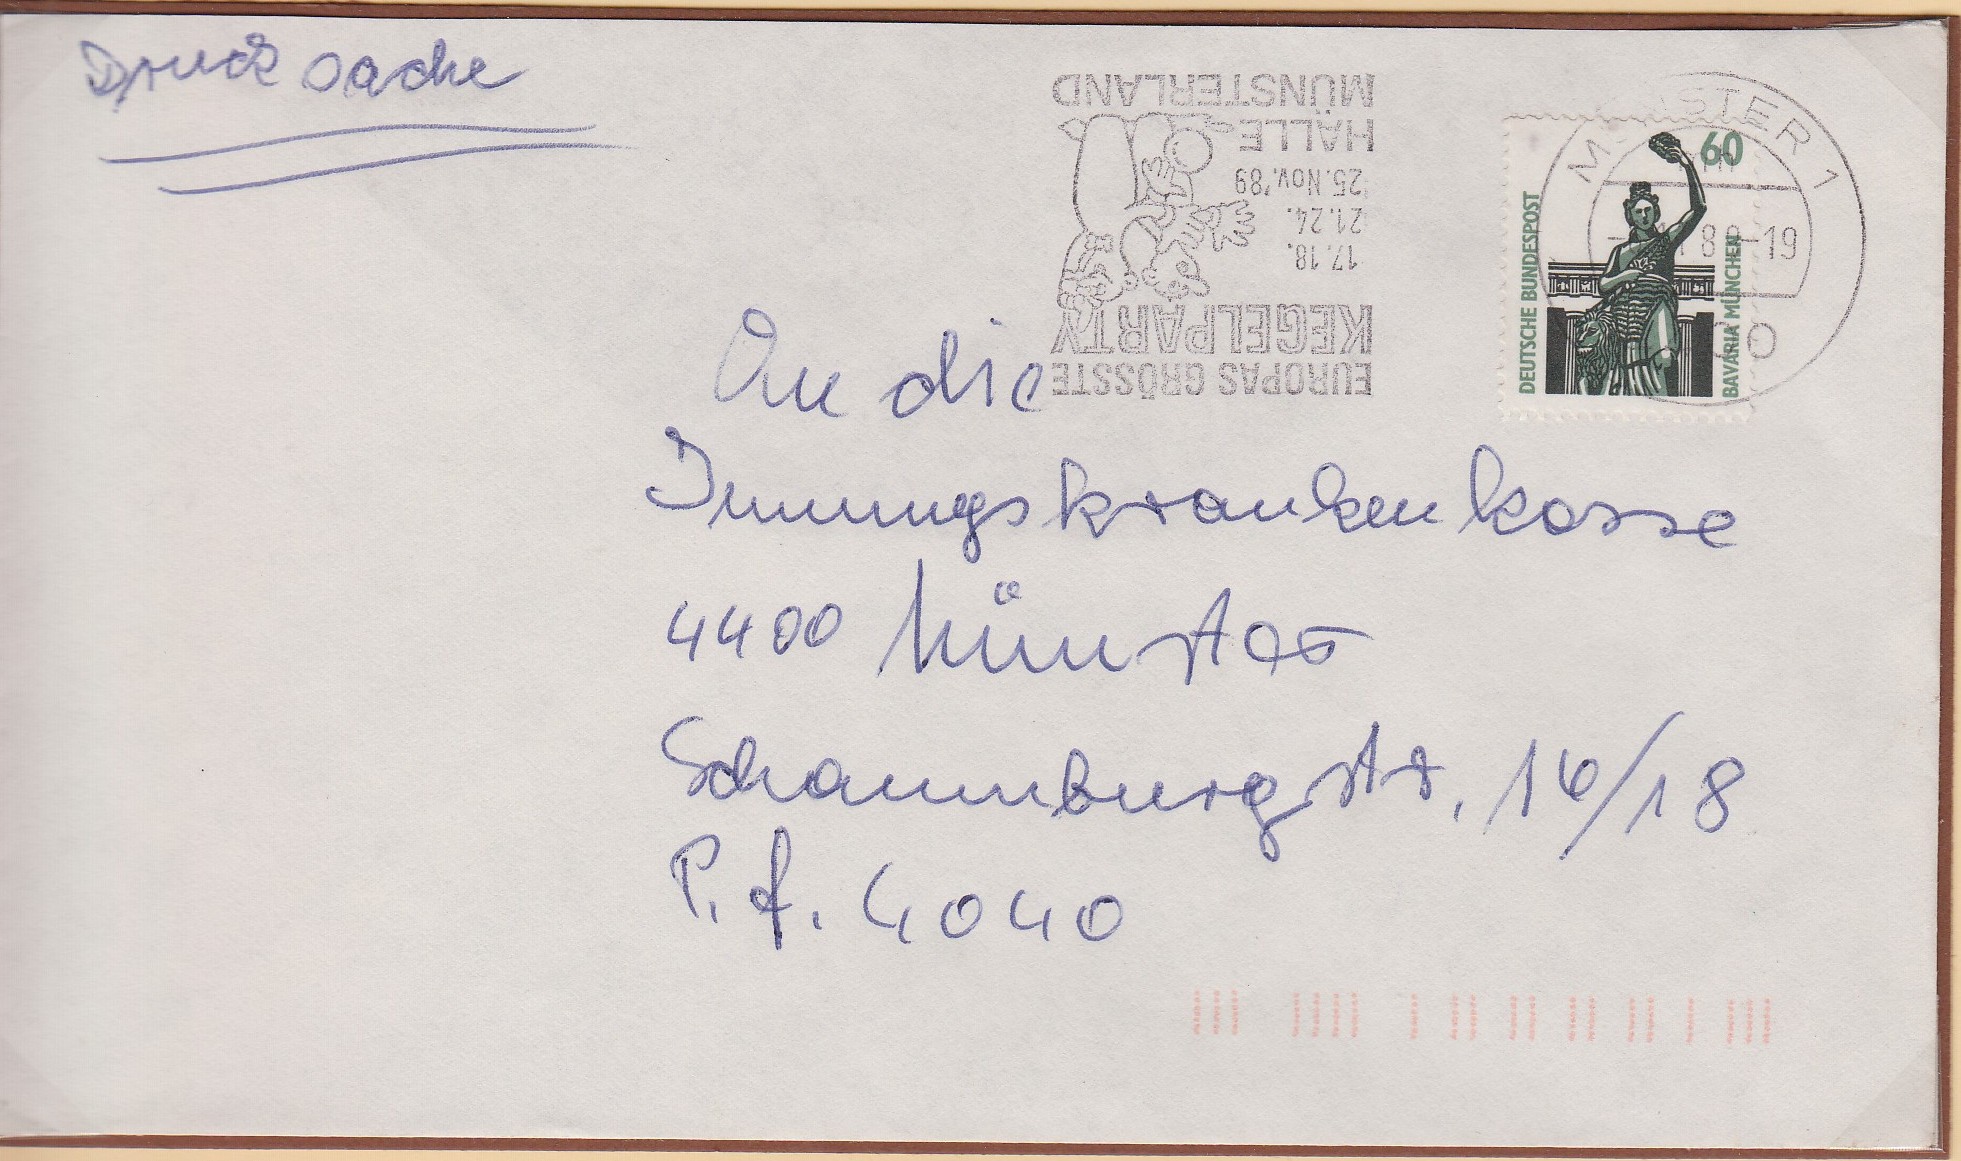 Drucksache
MÜNSTER 1
89-19
60
DEUTSCHE BUNDESPOST
BAVARIA MÜNCHEN
EUROPAS GRÖSSTE
KEGELPARTY
17. 18.
21. 24.
25. Nov. '89
HALLE
MÜNSTERLAND
An die
Innungskrankenkasse
4400 Münster
Schaumburgstr. 16/18
P.f. 4040